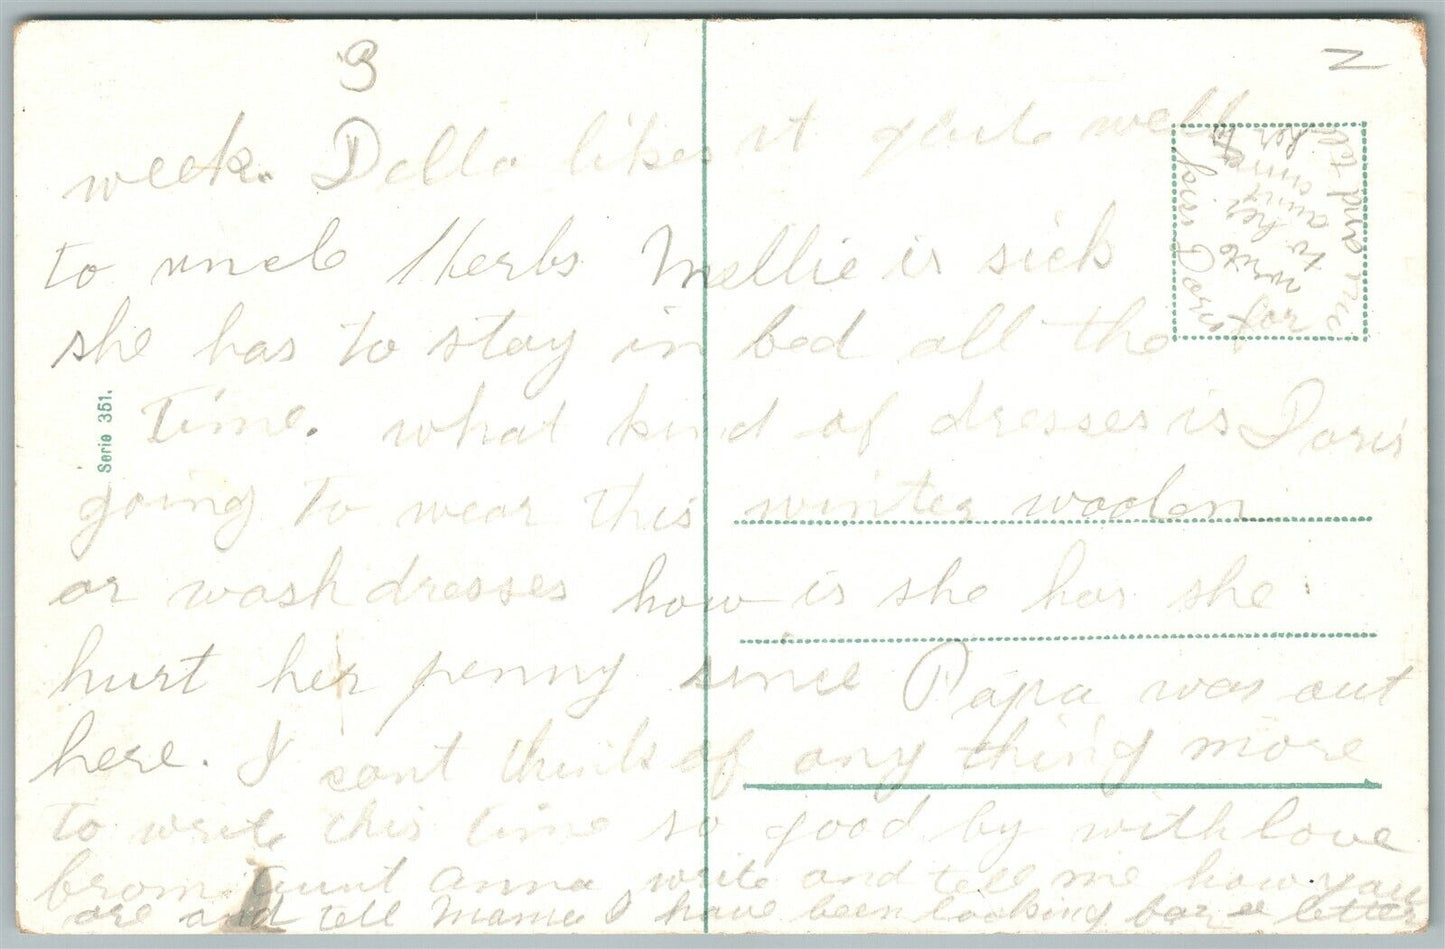 3
week. Della likes it quite well
to uncle Herbs Mellie is sick
she has to stay in bed all the
time. what kind of dresses is Doris
going to wear this winter woolen
or wash dresses how is she has she
hurt her penny since Papa was out
here. I cant think of any thing more
to write this time so good by with love
from Aunt Anna write and tell me how you
are and tell Mama I have been looking for a letter
for
kiss Doris for me and
write to her aunt
Serie 351.